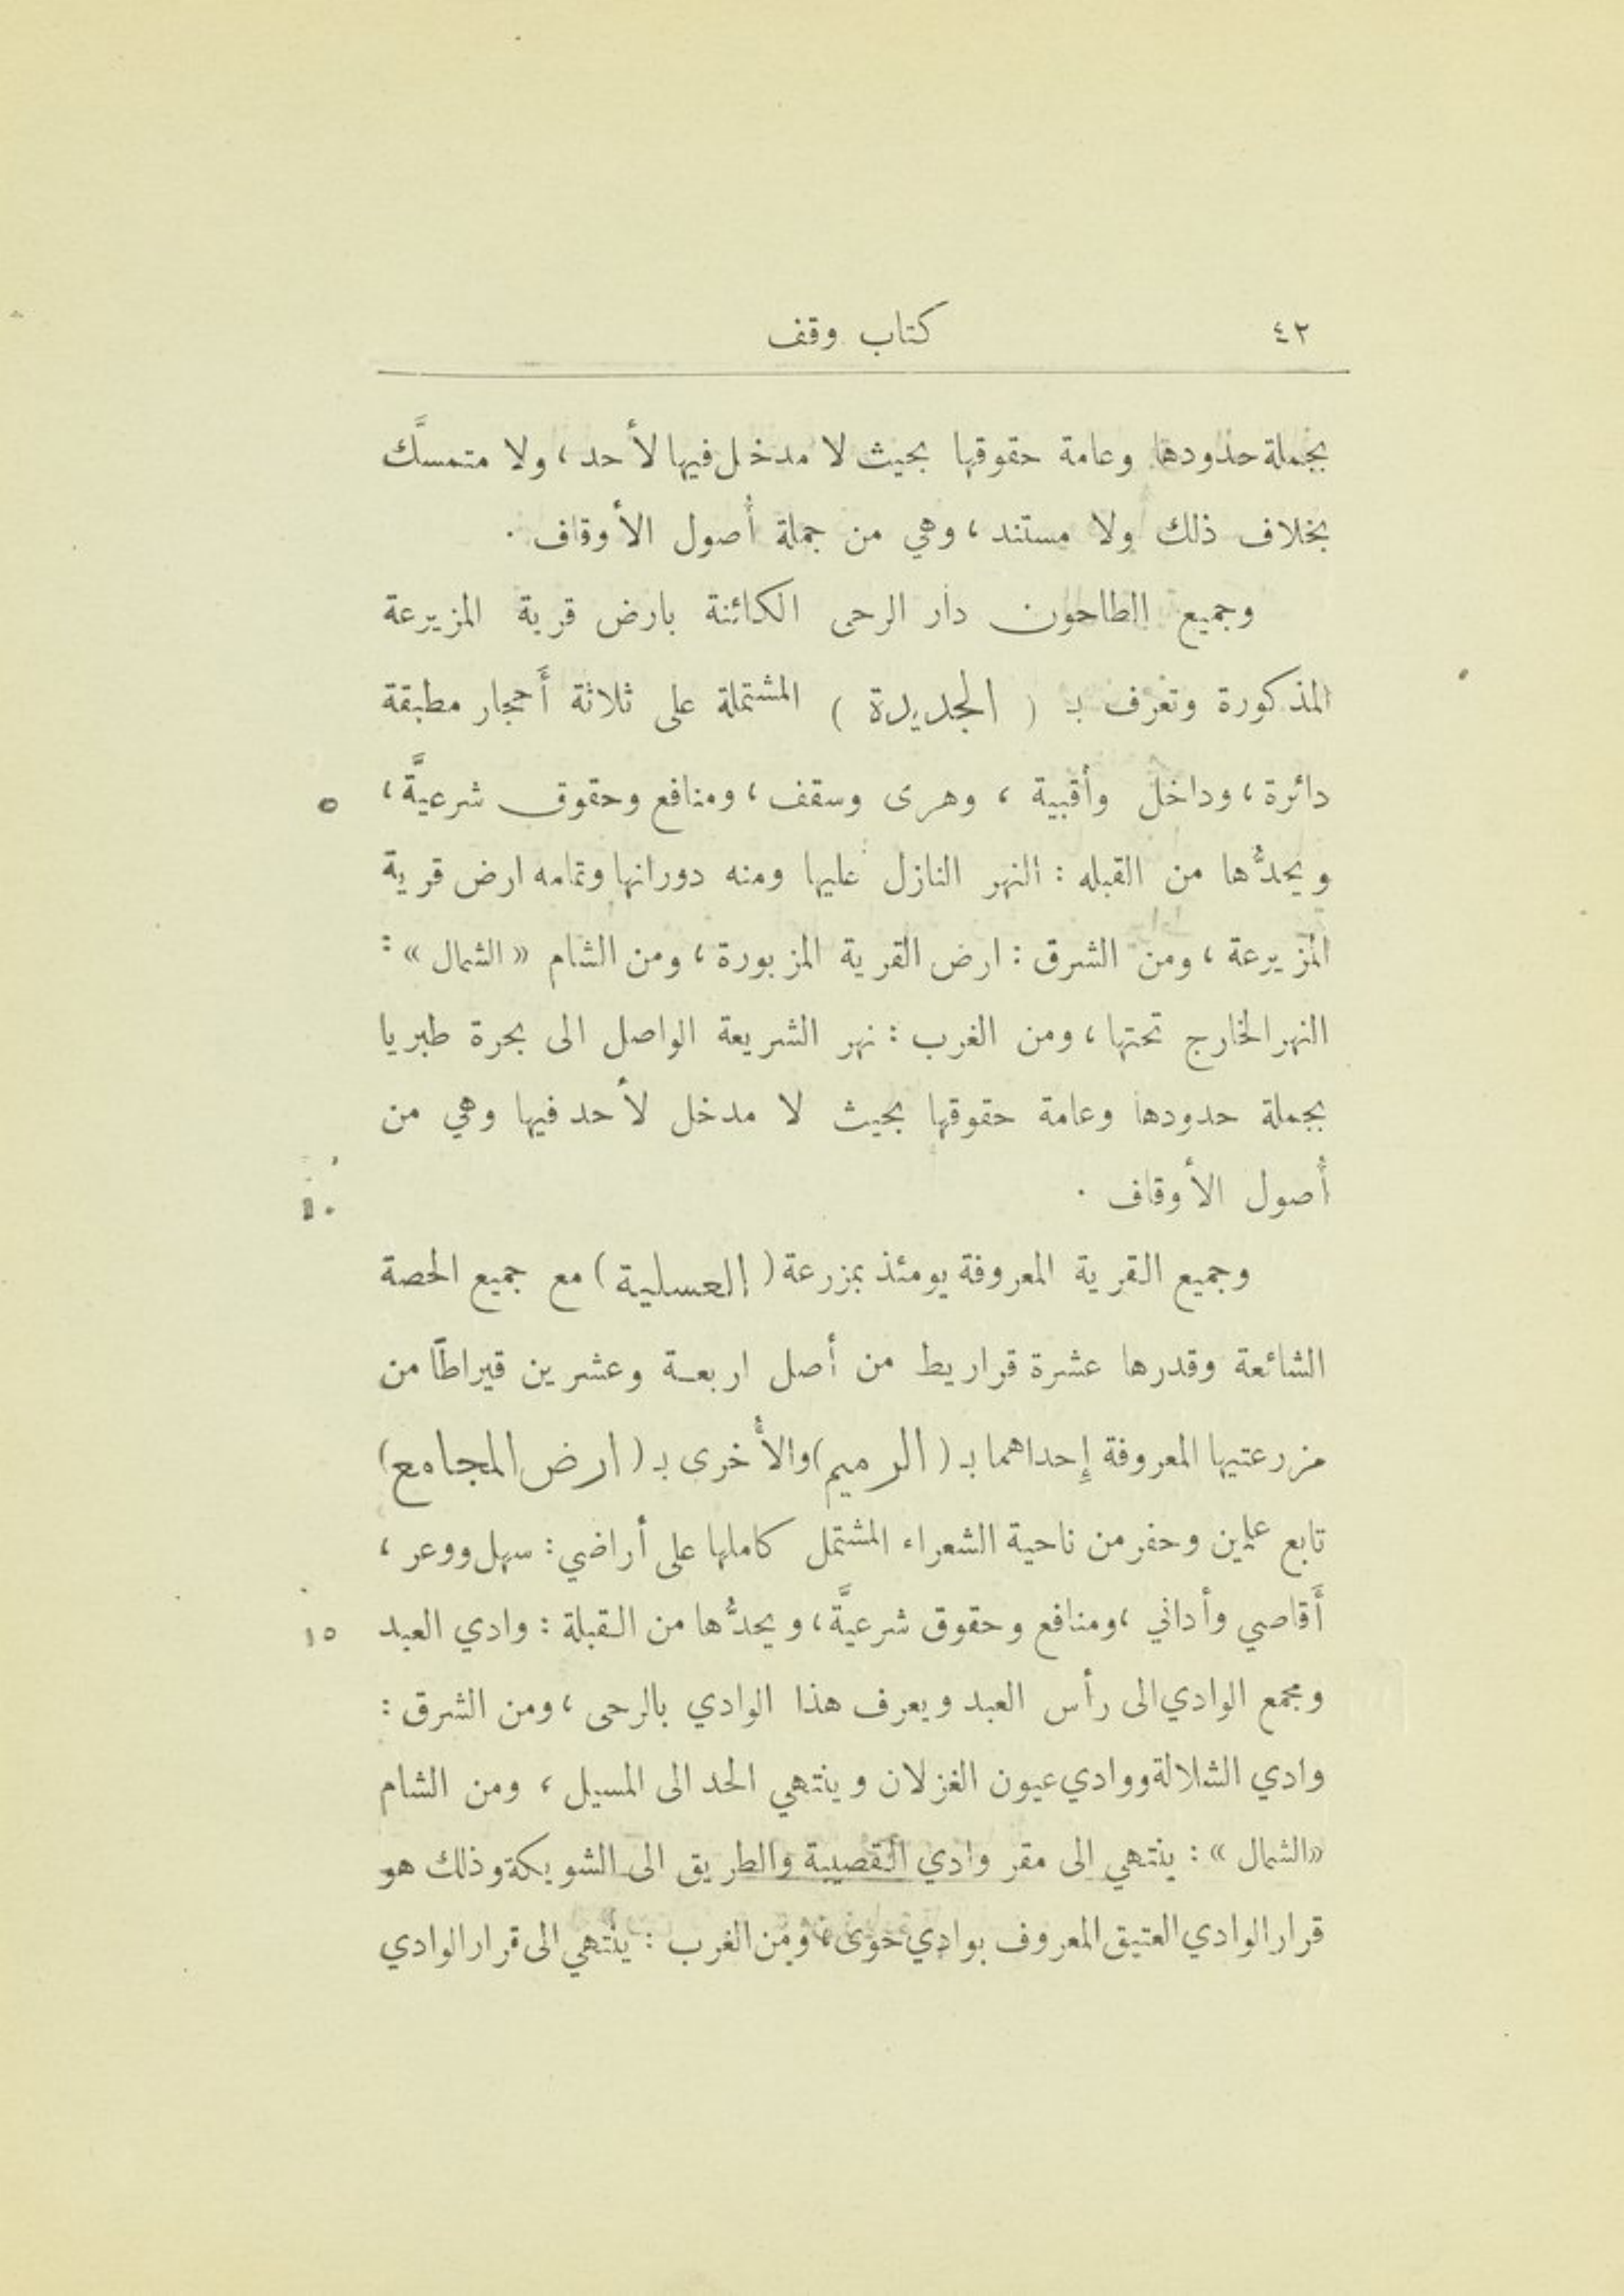 ٤٢ كتاب وقف
بجملة حدودها وعامة حقوقها بحيث لا مدخل فيها لأحد ، ولا متمسَّك
بخلاف ذلك ولا مستند ، وهي من جملة أُصول الأوقاف .
وجميع الطاحون دار الرحى الكائنة بارض قرية المزيرعة
المذكورة وتعرف بـ ( الجديدة ) المشتملة على ثلاثة أَحجار مطبقة
٥ دائرة ، وداخل وأقبية ، وهرى وسقف ، ومنافع وحقوق شرعيَّة ،
ويحدُّها من القبله : النهر النازل عليها ومنه دورانها وتمامه ارض قرية
المزيرعة ، ومن الشرق : ارض القرية المزبورة ، ومن الشام « الشمال » :
النهر الخارج تحتها ، ومن الغرب : نهر الشريعة الواصل الى بحرة طبريا
بجملة حدودها وعامة حقوقها بحيث لا مدخل لأحد فيها وهي من
١٠ أُصول الأوقاف .
وجميع القرية المعروفة يومئذ بمزرعة ( العسلية ) مع جميع الحصة
الشائعة وقدرها عشرة قراريط من أصل اربعـة وعشرين قيراطًا من
مزرعتيها المعروفة إِحداهما بـ ( الرميم ) والأُخرى بـ ( ارض المجامع )
تابع علمين وحفر من ناحية الشعراء المشتمل كاملها على أراضي : سهل ووعر ،
١٥ أَقاصي وأداني ، ومنافع وحقوق شرعيَّة ، ويحدُّها من القبلة : وادي العبد
ومجمع الوادي الى رأس العبد ويعرف هذا الوادي بالرحى ، ومن الشرق :
وادي الشلالة ووادي عيون الغزلان وينتهي الحد الى المسيل ، ومن الشام
« الشمال » : ينتهي الى مقر وادي القصيبة والطريق الى الشويكة وذلك هو
قرار الوادي العتيق المعروف بوادي حوى ، ومن الغرب : ينتهي الى قرار الوادي